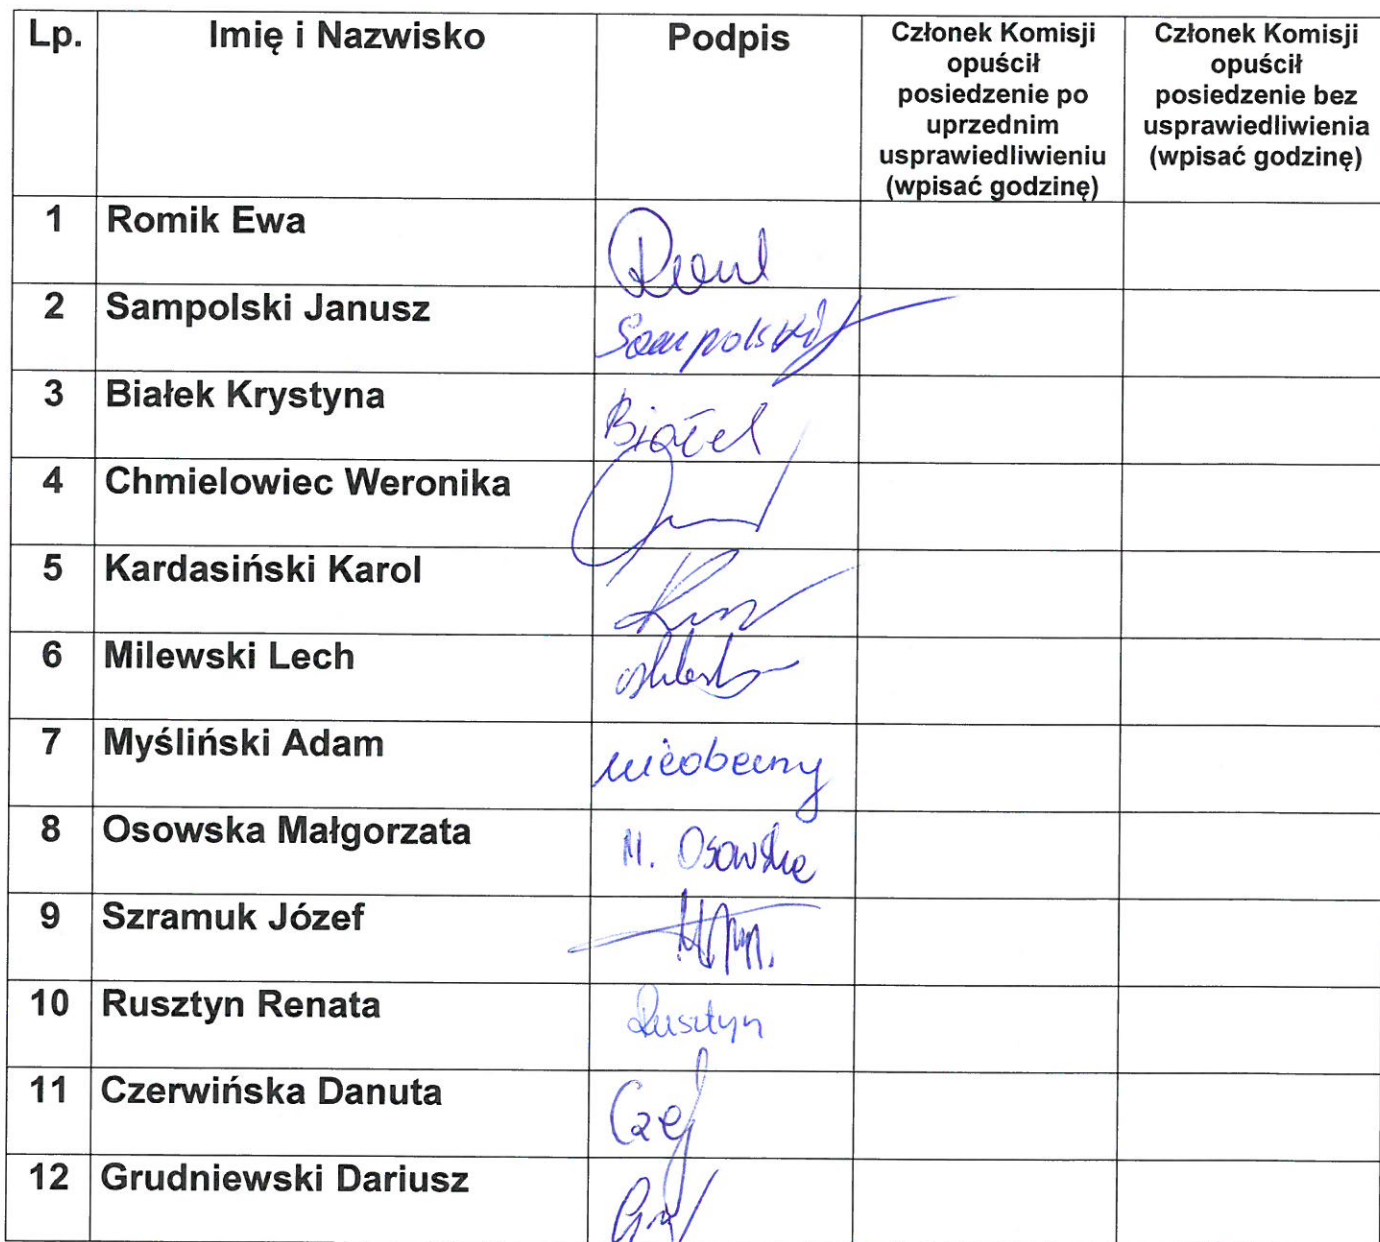 Lp. Imię i Nazwisko Podpis Członek Komisji opuścił posiedzenie po uprzednim usprawiedliwieniu (wpisać godzinę) Członek Komisji opuścił posiedzenie bez usprawiedliwienia (wpisać godzinę)
1 Romik Ewa
2 Sampolski Janusz Sampolski
3 Białek Krystyna Białek
4 Chmielowiec Weronika
5 Kardasiński Karol
6 Milewski Lech
7 Myśliński Adam nieobecny
8 Osowska Małgorzata M. Osowska
9 Szramuk Józef
10 Rusztyn Renata Rusztyn
11 Czerwińska Danuta
12 Grudniewski Dariusz